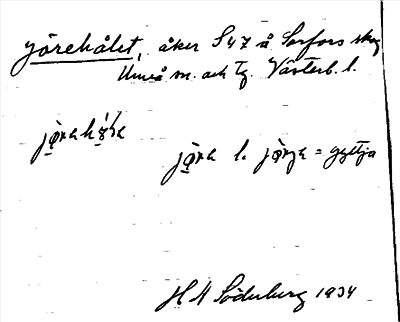 Jörehålet, åker S 47 å Sorfors skog
Umeå sn. och tg. Västerb. l.
jø̀ra l. jø̀rja = gyttja
H A Söderberg 1934